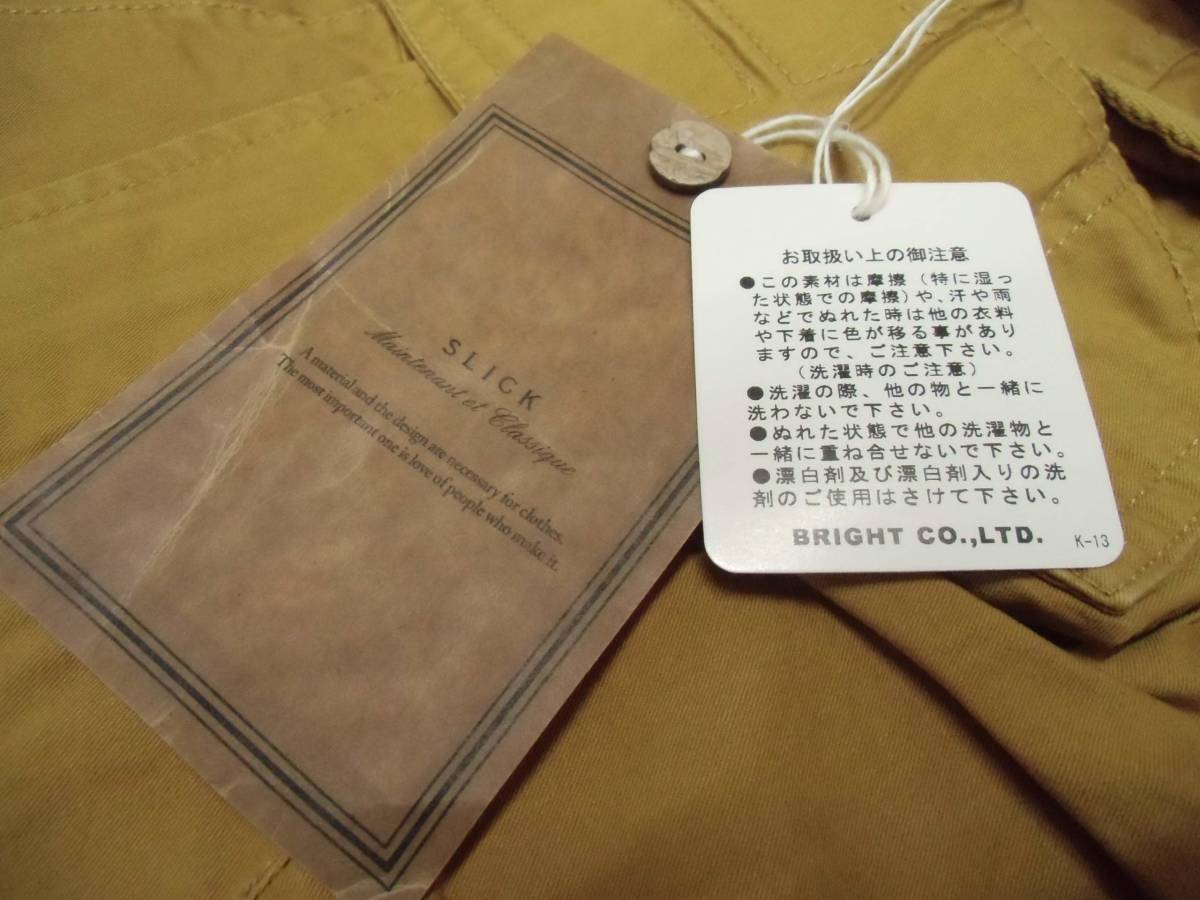 SLICK
Maintenant et Classique
A material and the design are necessary for clothes.
The most important one is love of people who make it.
お取扱い上の御注意
●この素材は摩擦(特に湿っ
た状態での摩擦)や、汗や雨
などでぬれた時は他の衣料
や下着に色が移る事があり
ますので、ご注意下さい。
(洗濯時のご注意)
●洗濯の際、他の物と一緒に
洗わないで下さい。
●ぬれた状態で他の洗濯物と
一緒に重ね合せないで下さい。
●漂白剤及び漂白剤入りの洗
剤のご使用はさけて下さい。
BRIGHT CO.,LTD. K-13